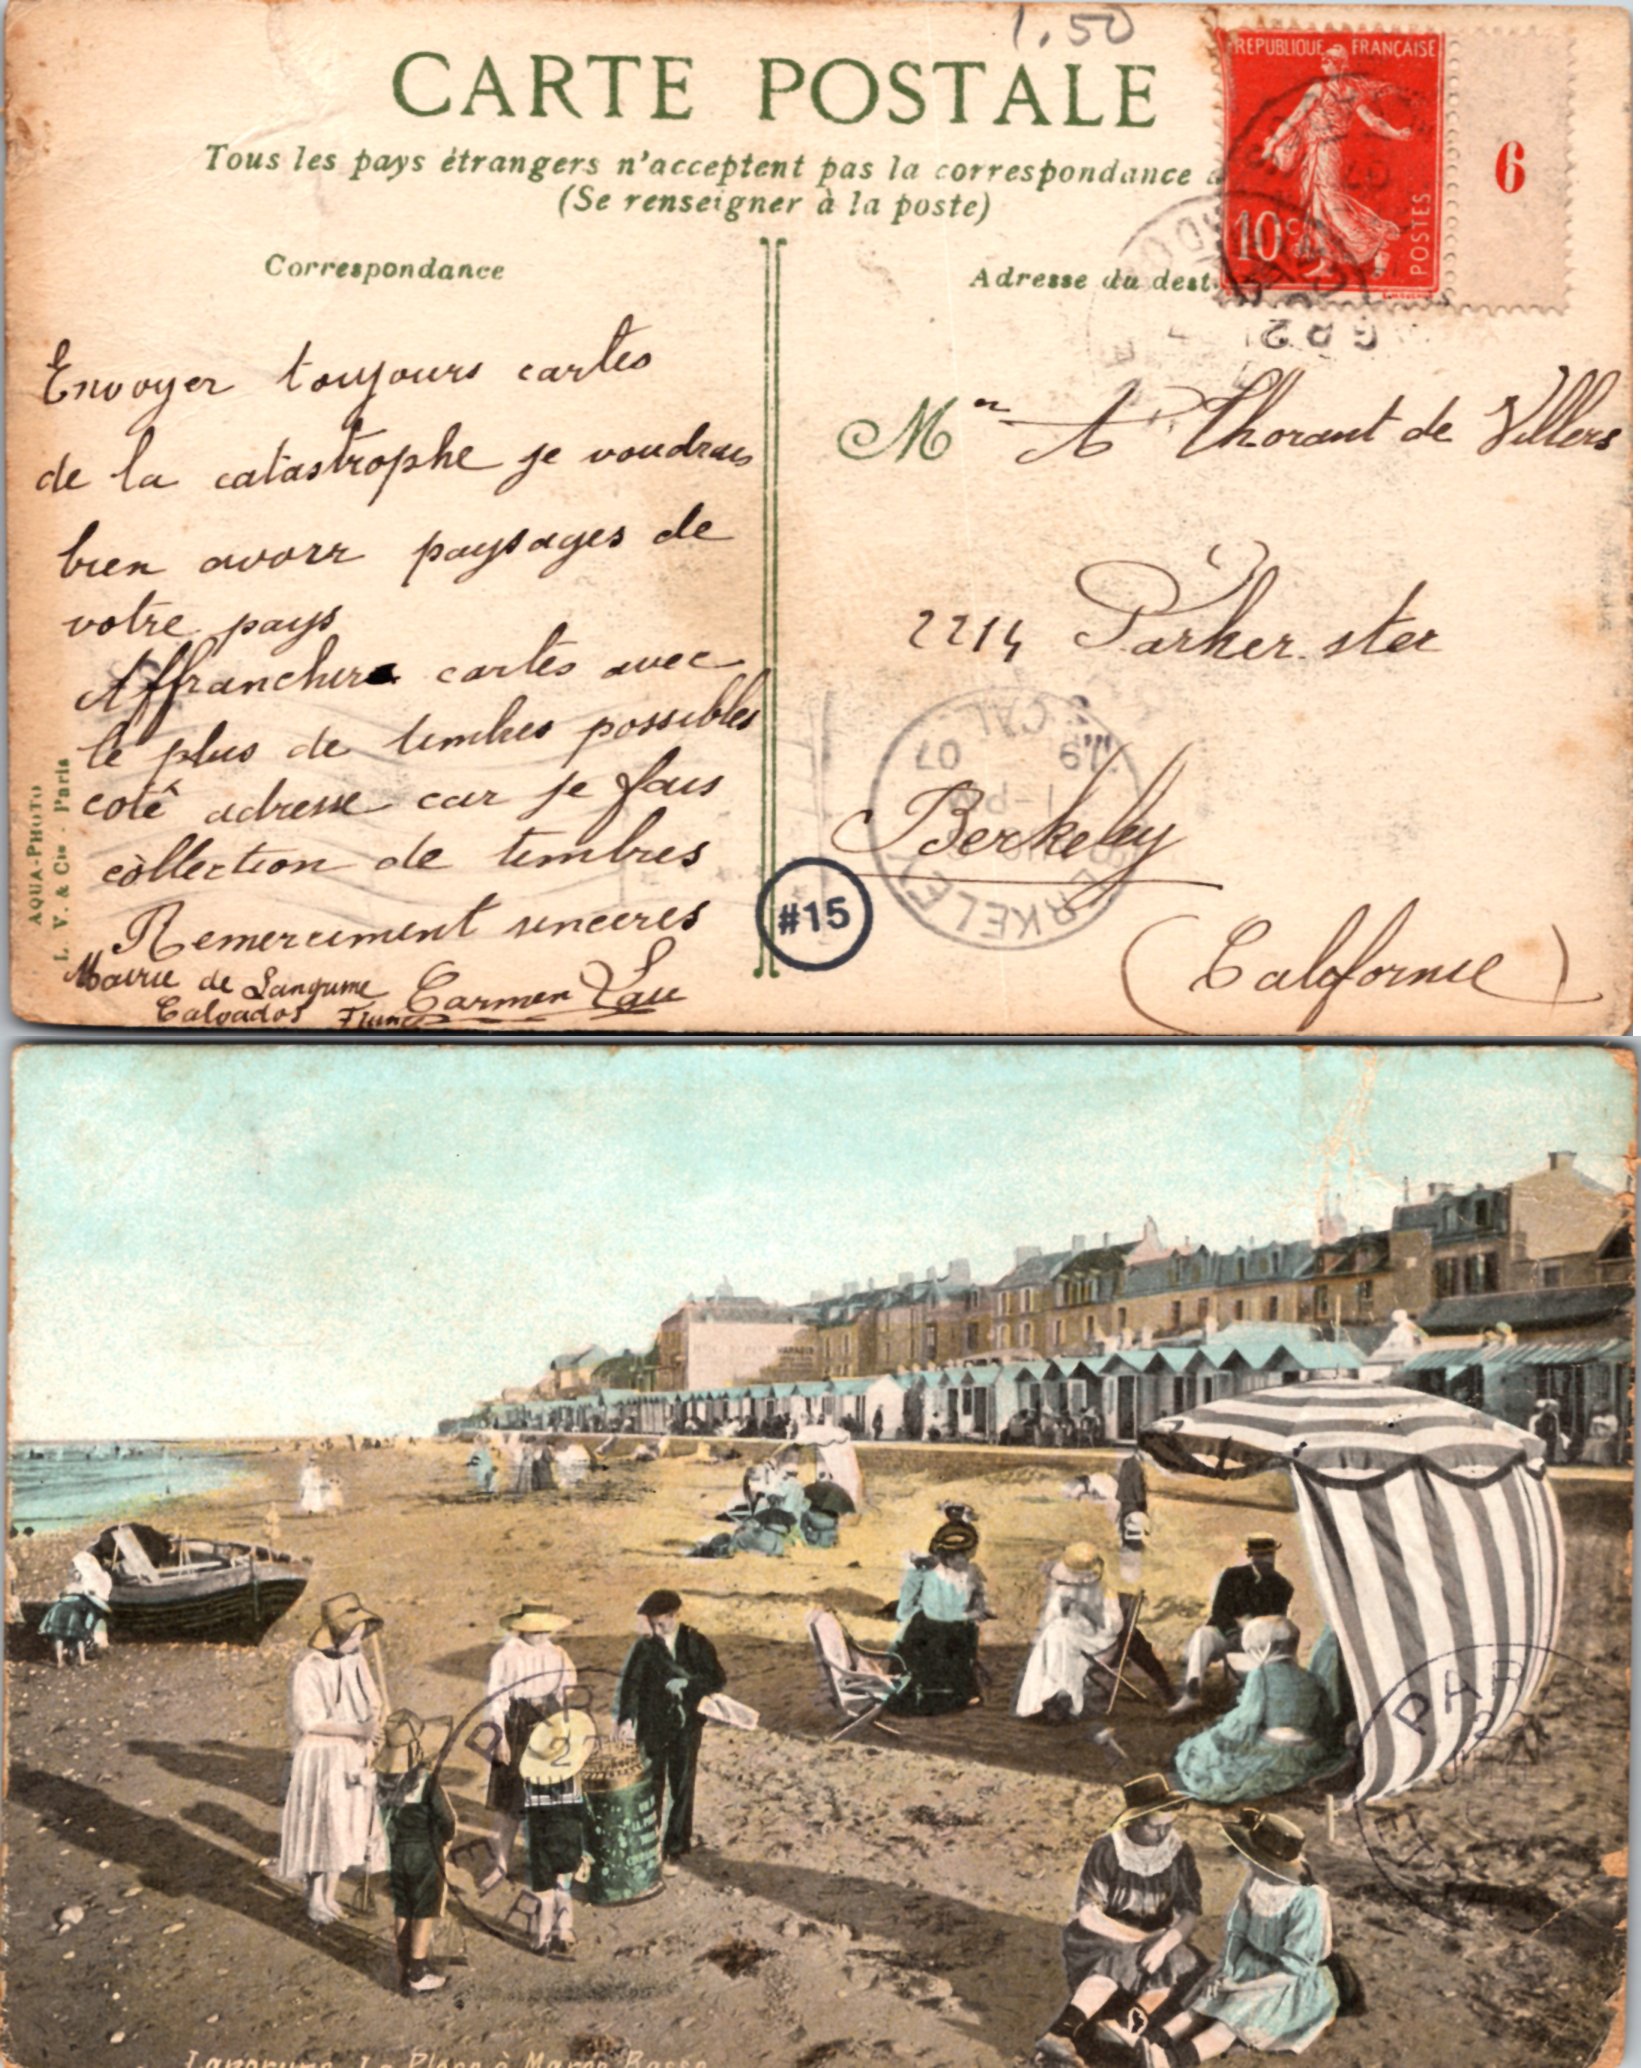 1.50
CARTE POSTALE
Tous les pays étrangers n'acceptent pas la correspondance
(Se renseigner à la poste)
REPUBLIQUE FRANÇAISE
10 c
POSTES
6
Correspondance
Adresse du dest
Envoyer toujours cartes
de la catastrophe je voudrais
bien avoir paysages de
votre pays
Affranchire cartes avec
le plus de timbres possibles
coté adresse car je fais
collection de timbres
Remerciment sinceres
Mairie de Langrune Carmen
Calvados
AQUA-PHOTO
L. V. & Cie - Paris
#15
M A Thorant de Villers
2214 Parker ster
Berkeley
(Californie)
BERKELEY
CAL
07
PAR
ETR
PAR
ETR
Langrune La Plage à Marée Basse